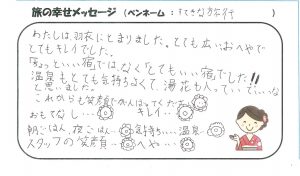 旅の幸せメッセージ (ペンネーム: すてきな旅行)
わたしは、羽衣にとまりました。とても広いおへやで
とてもキレイでした。
「ちょっといい宿」ではなく「とてもいい宿」でした!!
と思いました。
温泉もとても気持ちよくて、湯花も入っていていいな
これからも笑顔でがんばってください。
おもてなし… キレイ…
朝ごはん、夜ごはん… 気持ちいい温泉…
スタッフの笑顔… へや…